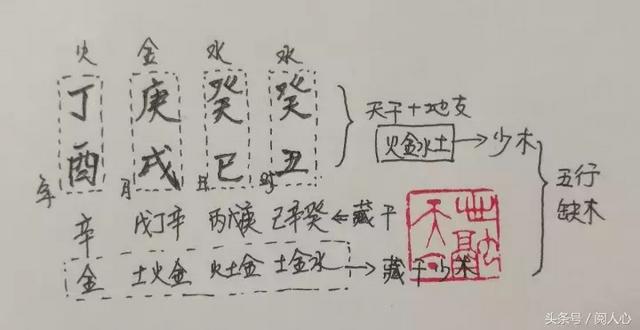 火 金 水 水
丁 庚 癸 癸
酉 戌 巳 丑
年 月 日 时
天干+地支
火金水土→少木
五行
缺木
辛 戊丁辛 丙戊庚 己辛癸←藏干
金 土火金 火土金 土金水→藏干少木
头条号/阅人心